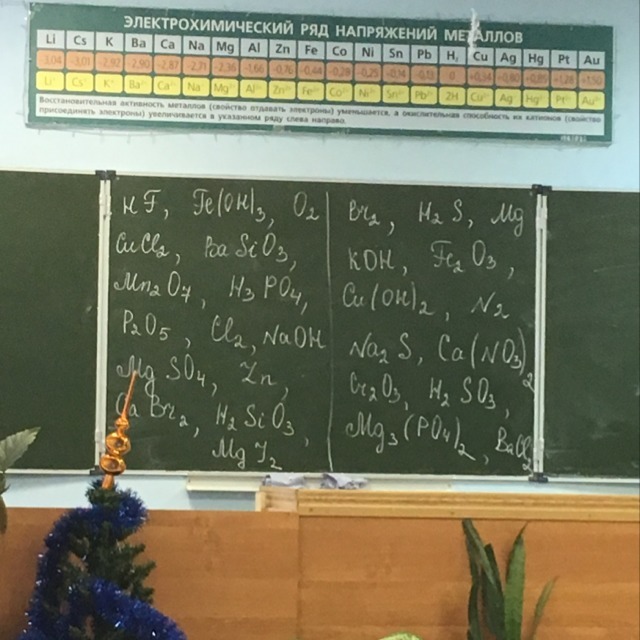 ЭЛЕКТРОХИМИЧЕСКИЙ РЯД НАПРЯЖЕНИЙ МЕТАЛЛОВ
Li Cs K Ba Ca Na Mg Al Zn Fe Co Ni Sn Pb H₂ Cu Ag Hg Pt Au
-3,04 -3,01 -2,92 -2,90 -2,87 -2,71 -2,36 -1,66 -0,76 -0,44 -0,28 -0,25 -0,14 -0,13 0 +0,34 +0,80 +0,85 +1,28 +1,50
Восстановительная активность металлов (свойство отдавать электроны) уменьшается, а окислительная способность их катионов (свойство
присоединять электроны) увеличивается в указанном ряду слева направо.
HF, Fe(OH)₃, O₂
CuCl₂, BaSiO₃,
Mn₂O₇, H₃PO₄,
P₂O₅, Cl₂, NaOH
MgSO₄, Zn,
CaBr₂, H₂SiO₃,
MgI₂
Br₂, H₂S, Mg
KOH, Fe₂O₃,
Cu(OH)₂, N₂
Na₂S, Ca(NO₃)₂
Cr₂O₃, H₂SO₃,
Mg₃(PO₄)₂, BaCl₂